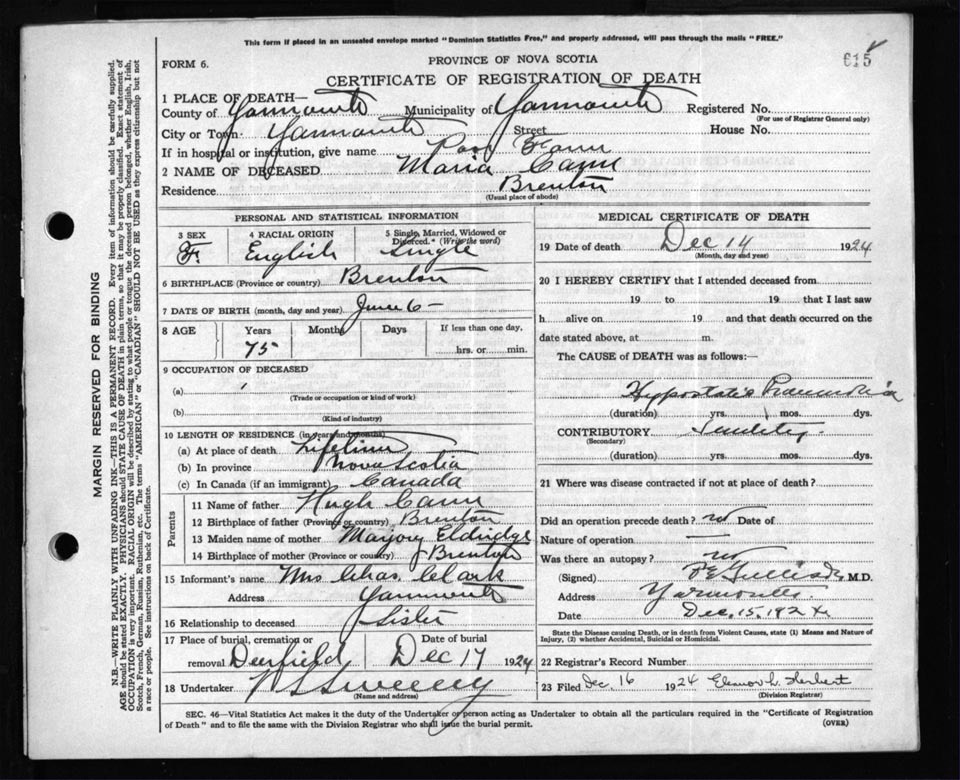 This form if placed in an unsealed envelope marked "Dominion Statistics Free," and properly addressed, will pass through the mails "FREE."
FORM 6.
PROVINCE OF NOVA SCOTIA
615
CERTIFICATE OF REGISTRATION OF DEATH
1 PLACE OF DEATH—
County of Yarmouth Municipality of Yarmouth Registered No.
(For use of Registrar General only)
City or Town Yarmouth Street House No.
If in hospital or institution, give name Poor Farm
2 NAME OF DECEASED Maria Cann
Residence Brenton
(Usual place of abode)
PERSONAL AND STATISTICAL INFORMATION
3 SEX 4 RACIAL ORIGIN 5 Single, Married, Widowed or Divorced.* (Write the word)
F. English Single
6 BIRTHPLACE (Province or country) Brenton
7 DATE OF BIRTH (month, day and year) June 6 —
8 AGE Years Months Days If less than one day,
75 hrs. or min.
9 OCCUPATION OF DECEASED
(a)
(Trade or occupation or kind of work)
(b)
(Kind of industry)
10 LENGTH OF RESIDENCE (in years and months)
(a) At place of death Lifetime
(b) In province Nova Scotia
(c) In Canada (if an immigrant) Canada
Parents
11 Name of father Hugh Cann
12 Birthplace of father (Province or country) Brenton
13 Maiden name of mother Marjory Eldridge
14 Birthplace of mother (Province or country) Brenton
15 Informant's name Mrs Chas. Clark
Address Yarmouth
16 Relationship to deceased Sister
17 Place of burial, cremation or removal Deerfield Date of burial Dec 17 1924
18 Undertaker Sweeny
(Name and address)
MEDICAL CERTIFICATE OF DEATH
19 Date of death Dec 14 1924
(Month, day and year)
20 I HEREBY CERTIFY that I attended deceased from
19 to 19 that I last saw
h alive on 19 and that death occurred on the
date stated above, at m.
The CAUSE of DEATH was as follows:
Hypostatic Pneumonia
(duration) yrs. mos. dys.
CONTRIBUTORY Senility.
(Secondary)
(duration) yrs. mos. dys.
21 Where was disease contracted if not at place of death?
Did an operation precede death? no Date of
Nature of operation —
Was there an autopsy? no
(Signed) M.D.
Address Yarmouth.
Date Dec. 15. 1924
State the Disease causing Death, or in death from Violent Causes, state (1) Means and Nature of
Injury, (2) whether Accidental, Suicidal or Homicidal.
22 Registrar's Record Number
23 Filed Dec. 16 1924 Herbert
(Division Registrar)
SEC. 46—Vital Statistics Act makes it the duty of the Undertaker or person acting as Undertaker to obtain all the particulars required in the "Certificate of Registration
of Death" and to file the same with the Division Registrar who shall issue the burial permit. (OVER)
MARGIN RESERVED FOR BINDING
N.B.—WRITE PLAINLY WITH UNFADING INK—THIS IS A PERMANENT RECORD. Every item of information should be carefully supplied.
AGE should be stated EXACTLY. PHYSICIANS should STATE CAUSE OF DEATH in plain terms, so that it may be properly classified. Exact statement of
OCCUPATION is very important. RACIAL ORIGIN will be described by stating to what people or tongue the deceased person belonged, whether English, Irish,
Scotch, French, German, Russian, Ruthenian, etc. The terms "AMERICAN" or "CANADIAN" SHOULD NOT BE USED as they express citizenship but not
a race or people. See instructions on back of Certificate.